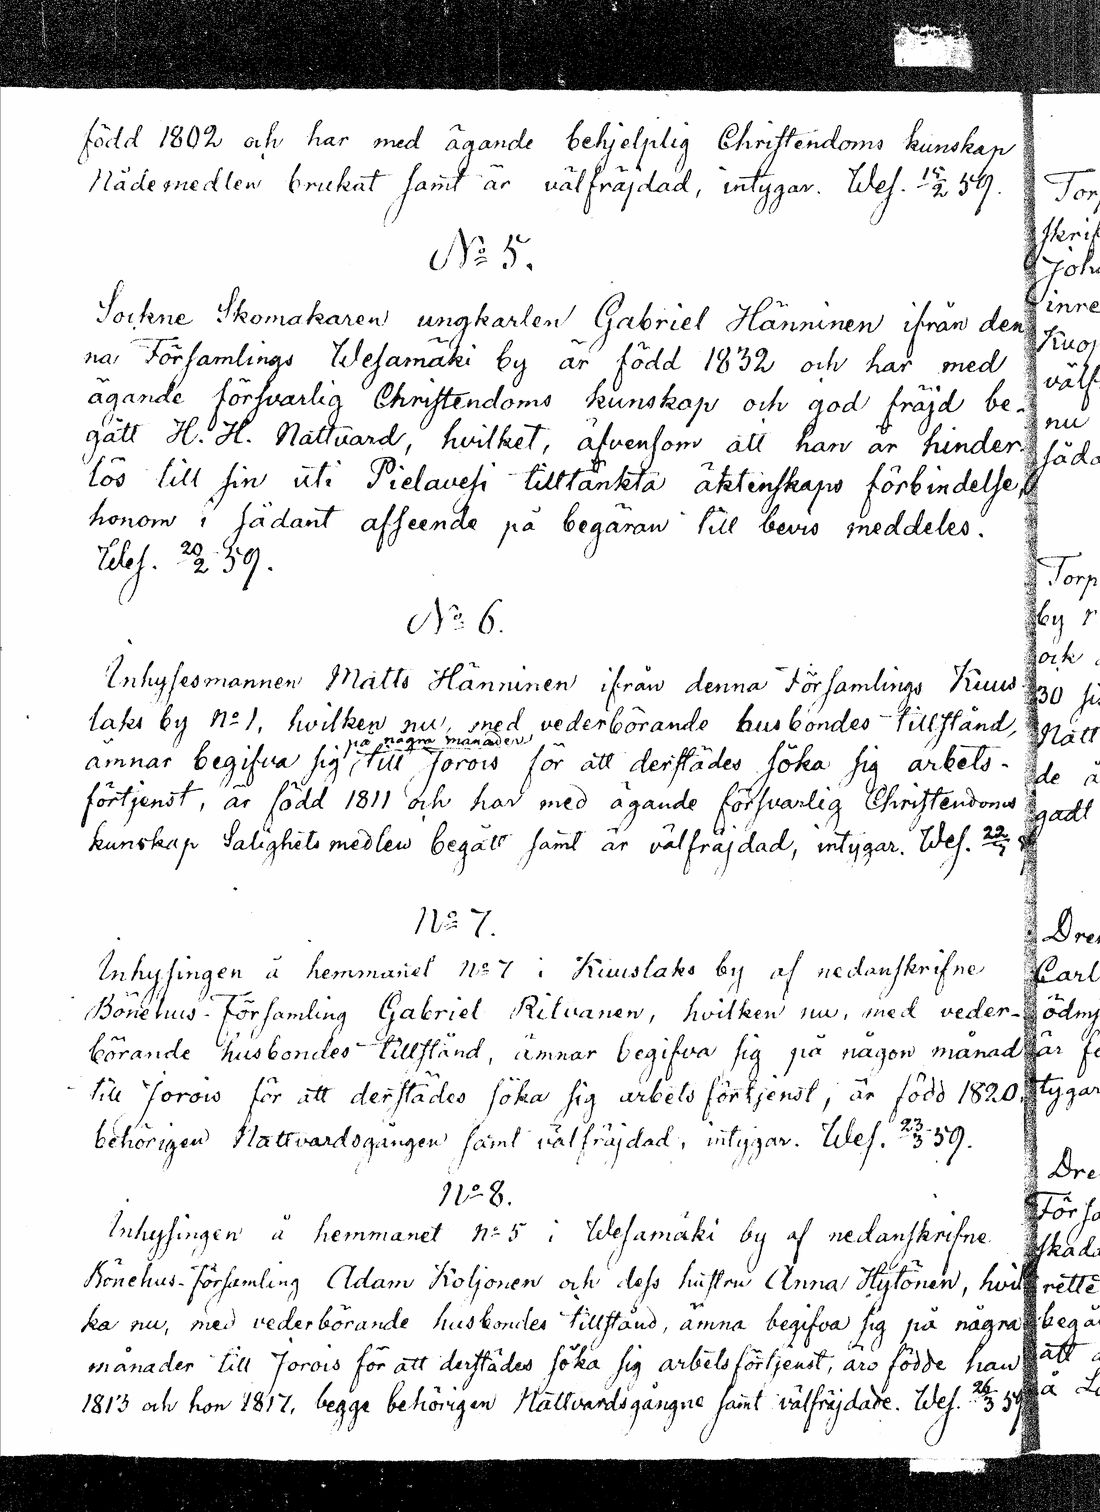 född 1802 och har med ägande behjelplig Christendoms kunskap
Nådemedlen brukat samt är välfräjdad, intygar. Wes. 15/2 59.
No 5.
Sockne Skomakaren ungkarlen Gabriel Hänninen ifrån den
na Församlings Wesamäki by är född 1832 och har med
ägande försvarlig Christendoms kunskap och god fräjd be-
gått H. H. Nattvard, hvilket, äfvensom att han är hinder-
lös till sin uti Pielavesi tilltänkta äktenskaps förbindelse,
honom i sådant afseende på begäran till bevis meddeles.
Wes. 20/2 59.
No 6.
Inhysesmannen Matts Hänninen ifrån denna Församlings Kuus
laks by No 1, hvilken nu, med vederbörande husbondes tillstånd,
på några månader
ämnar begifva sig, till Jorois för att derstädes söka sig arbets-
förtjenst, är född 1811 och har med ägande försvarlig Christendoms
kunskap Salighetsmedlen begått samt är välfräjdad, intygar. Wes.
No 7.
Inhysingen å hemmanet No 7 i Kuuslaks by af nedanskrifne
Bönehus-Församling Gabriel Ritvanen, hvilken nu, med veder-
börande husbondes tillstånd, ämnar begifva sig på någon månad
till Jorois för att derstädes söka sig arbetsförtjenst, är född 1820,
behörigen Nattvardsgången samt välfräjdad, intygar. Wes. 23/3 59.
No 8.
Inhysingen å hemmanet No 5 i Wesamäki by af nedanskrifne
Bönehus-Församling Adam Koljonen och dess hustru Anna Hytönen, hvil
ka nu, med vederbörande husbondes tillstånd, ämna begifva sig på några
månader till Jorois för att derstädes söka sig arbetsförtjenst, äro födde han
1813 och hon 1817, begge behörigen Nattvardsgångne samt välfräjdade. Wes. 26/3 59
Torp
skrif
Joh
inre
Kuop
välf
nu
såda
Torp
by
och
30
Natt
de
gadt
Dre
Carl
ödmj
är
tygar
Dre
Förs
skad
rätte
begå
att
å